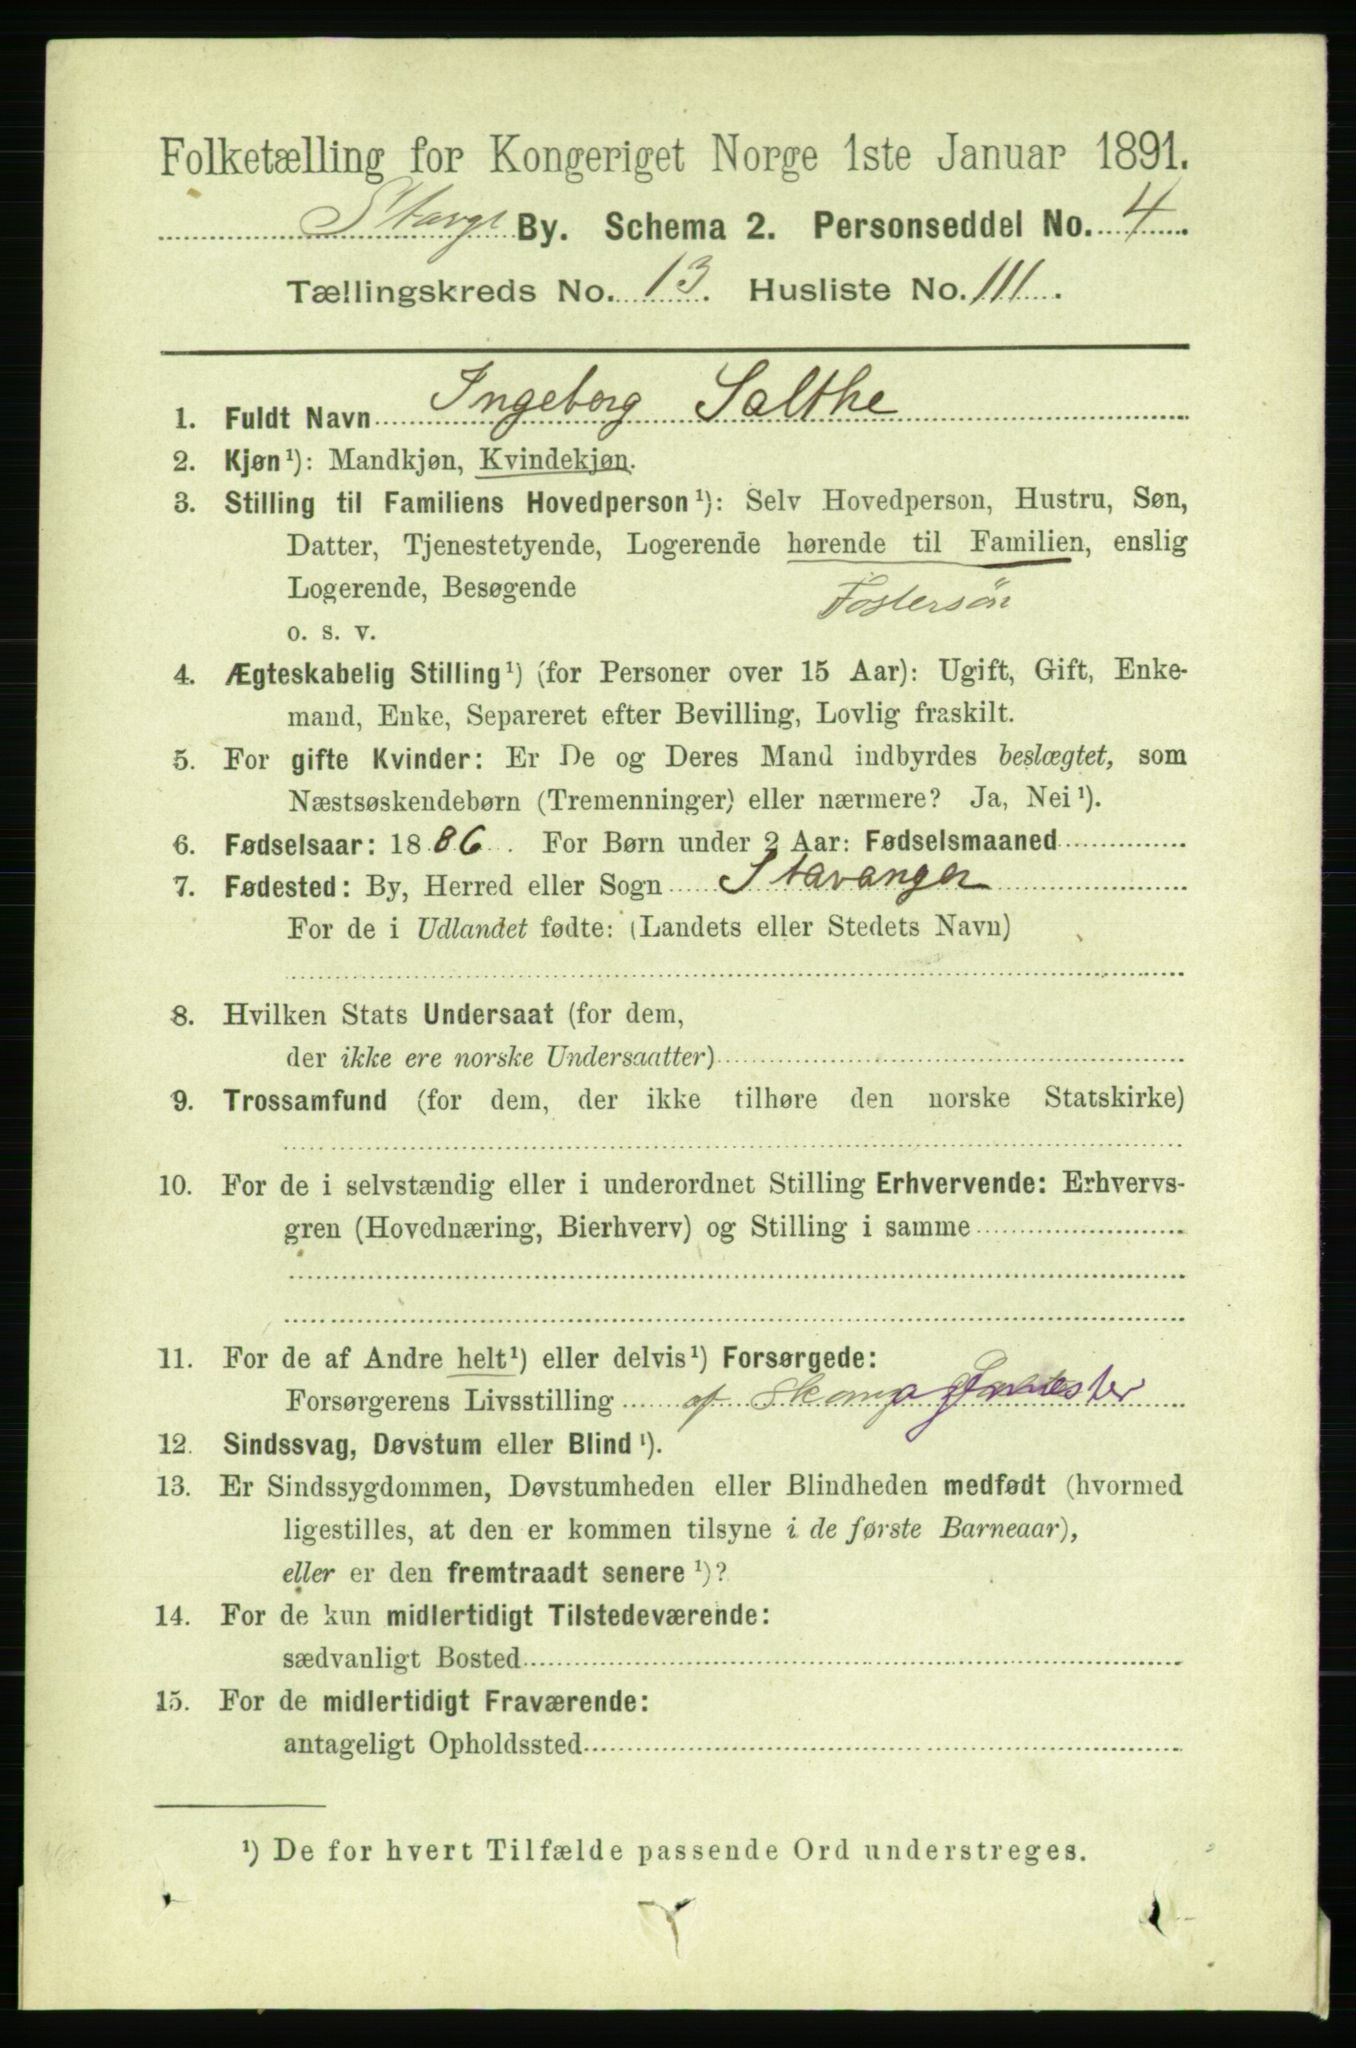 Folketælling for Kongeriget Norge 1ste Januar 1891.
Stavgr By. Schema 2. Personseddel No. 4.
Tællingskreds No. 13. Husliste No. 111.
1. Fuldt Navn Ingeborg Salthe
2. Kjøn¹): Mandkjøn, Kvindekjøn.
3. Stilling til Familiens Hovedperson¹): Selv Hovedperson, Hustru, Søn,
Datter, Tjenestetyende, Logerende hørende til Familien, enslig
Logerende, Besøgende Fostersön
o. s. v.
4. Ægteskabelig Stilling¹) (for Personer over 15 Aar): Ugift, Gift, Enke-
mand, Enke, Separeret efter Bevilling, Lovlig fraskilt.
5. For gifte Kvinder: Er De og Deres Mand indbyrdes beslægtet, som
Næstsøskendebørn (Tremenninger) eller nærmere? Ja, Nei¹).
6. Fødselsaar: 1886. For Børn under 2 Aar: Fødselsmaaned
7. Fødested: By, Herred eller Sogn Stavanger
For de i Udlandet fødte: (Landets eller Stedets Navn)
8. Hvilken Stats Undersaat (for dem,
der ikke ere norske Undersaatter)
9. Trossamfund (for dem, der ikke tilhøre den norske Statskirke)
10. For de i selvstændig eller i underordnet Stilling Erhvervende: Erhvervs-
gren (Hovednæring, Bierhverv) og Stilling i samme
11. For de af Andre helt¹) eller delvis¹) Forsørgede:
Forsørgerens Livsstilling af
12. Sindssvag, Døvstum eller Blind¹).
13. Er Sindssygdommen, Døvstumheden eller Blindheden medfødt (hvormed
ligestilles, at den er kommen tilsyne i de første Barneaar),
eller er den fremtraadt senere¹)?
14. For de kun midlertidigt Tilstedeværende:
sædvanligt Bosted
15. For de midlertidigt Fraværende:
antageligt Opholdssted
¹) De for hvert Tilfælde passende Ord understreges.